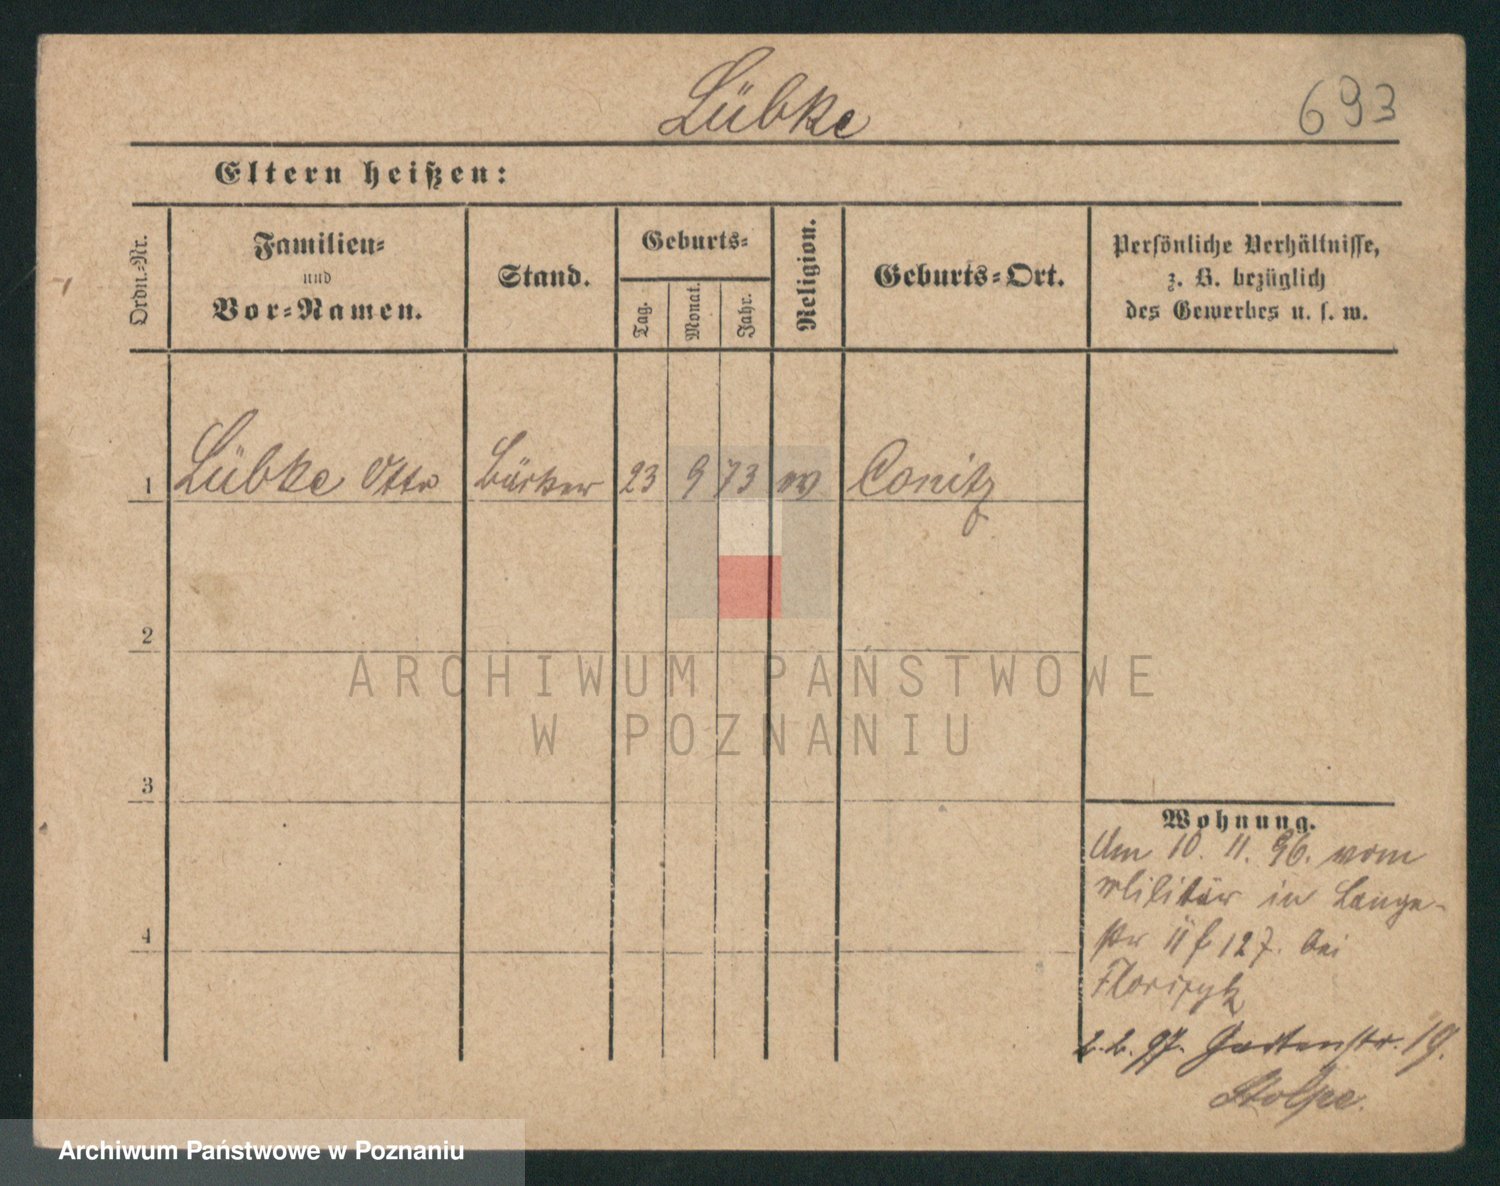 Lübke
693
Eltern heißen:
Ordn.-Nr.
Familien-
und
Vor-Namen.
Stand.
Geburts-
Tag.
Monat.
Jahr.
Religion.
Geburts-Ort.
Persönliche Verhältnisse,
z. B. bezüglich
des Gewerbes u. s. w.
1 Lübke Otto Bäcker 23 9 73 ev Conitz
2
3
4
Wohnung.
Am 10. 11. 96. vom
Militär in Lange-
str 11 f 127. bei
2. 2. 97. Gartenstr. 19.
Stolpe.
ARCHIWUM PAŃSTWOWE
W POZNANIU
Archiwum Państwowe w Poznaniu